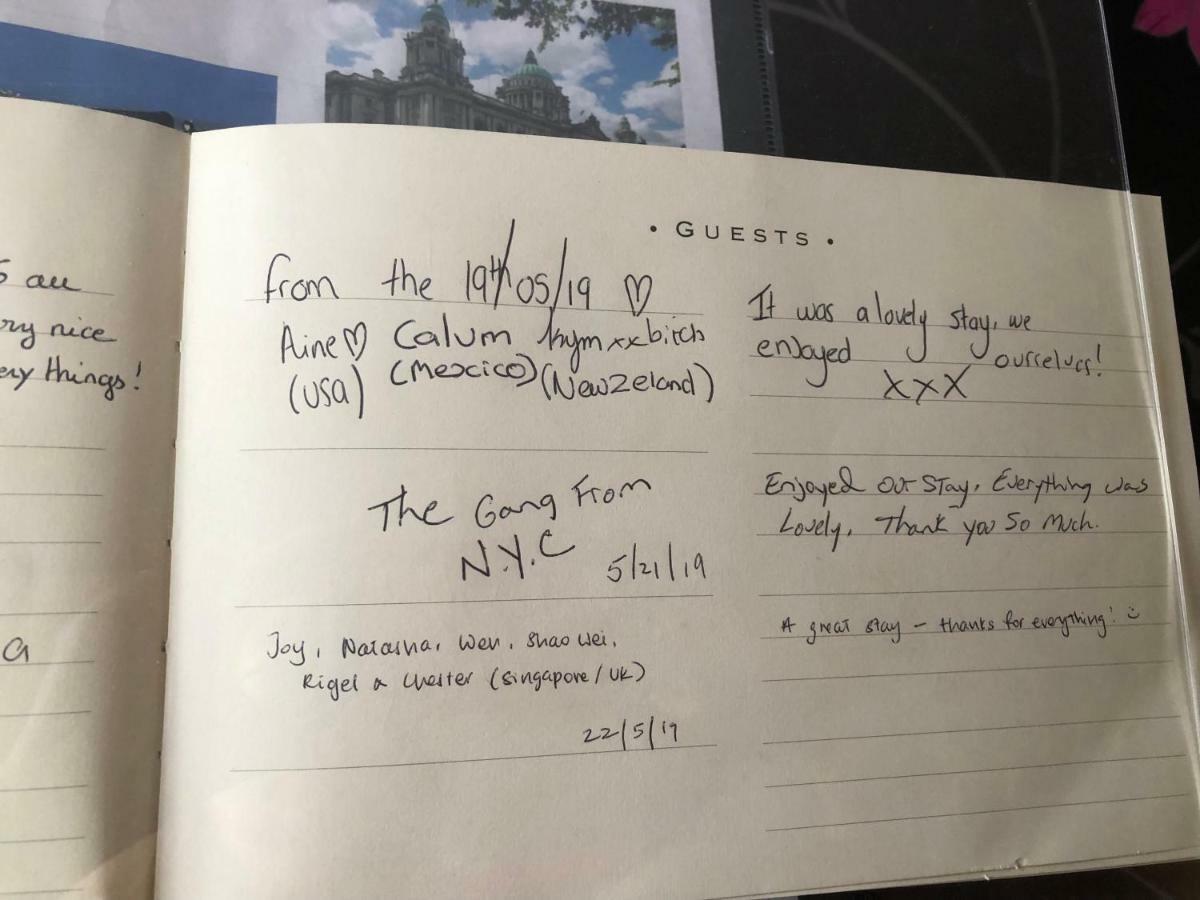 s all
ry nice
ery things!
a
• GUESTS •
from the 19th/05/19 ♡
Aine♡ Calum kym xx bitch
(USA) (Mexico) (NewZeland)
It was a lovely stay, we
enjoyed ourselves!
XxX
The Gang From
N.Y.C
5/21/19
Enjoyed our stay, Everything was
Lovely, Thank you So Much.
Joy, Natasha, Wen, Shao Wei,
Rigel & Chester (Singapore/UK)
22/5/19
A great stay – thanks for everything! :)